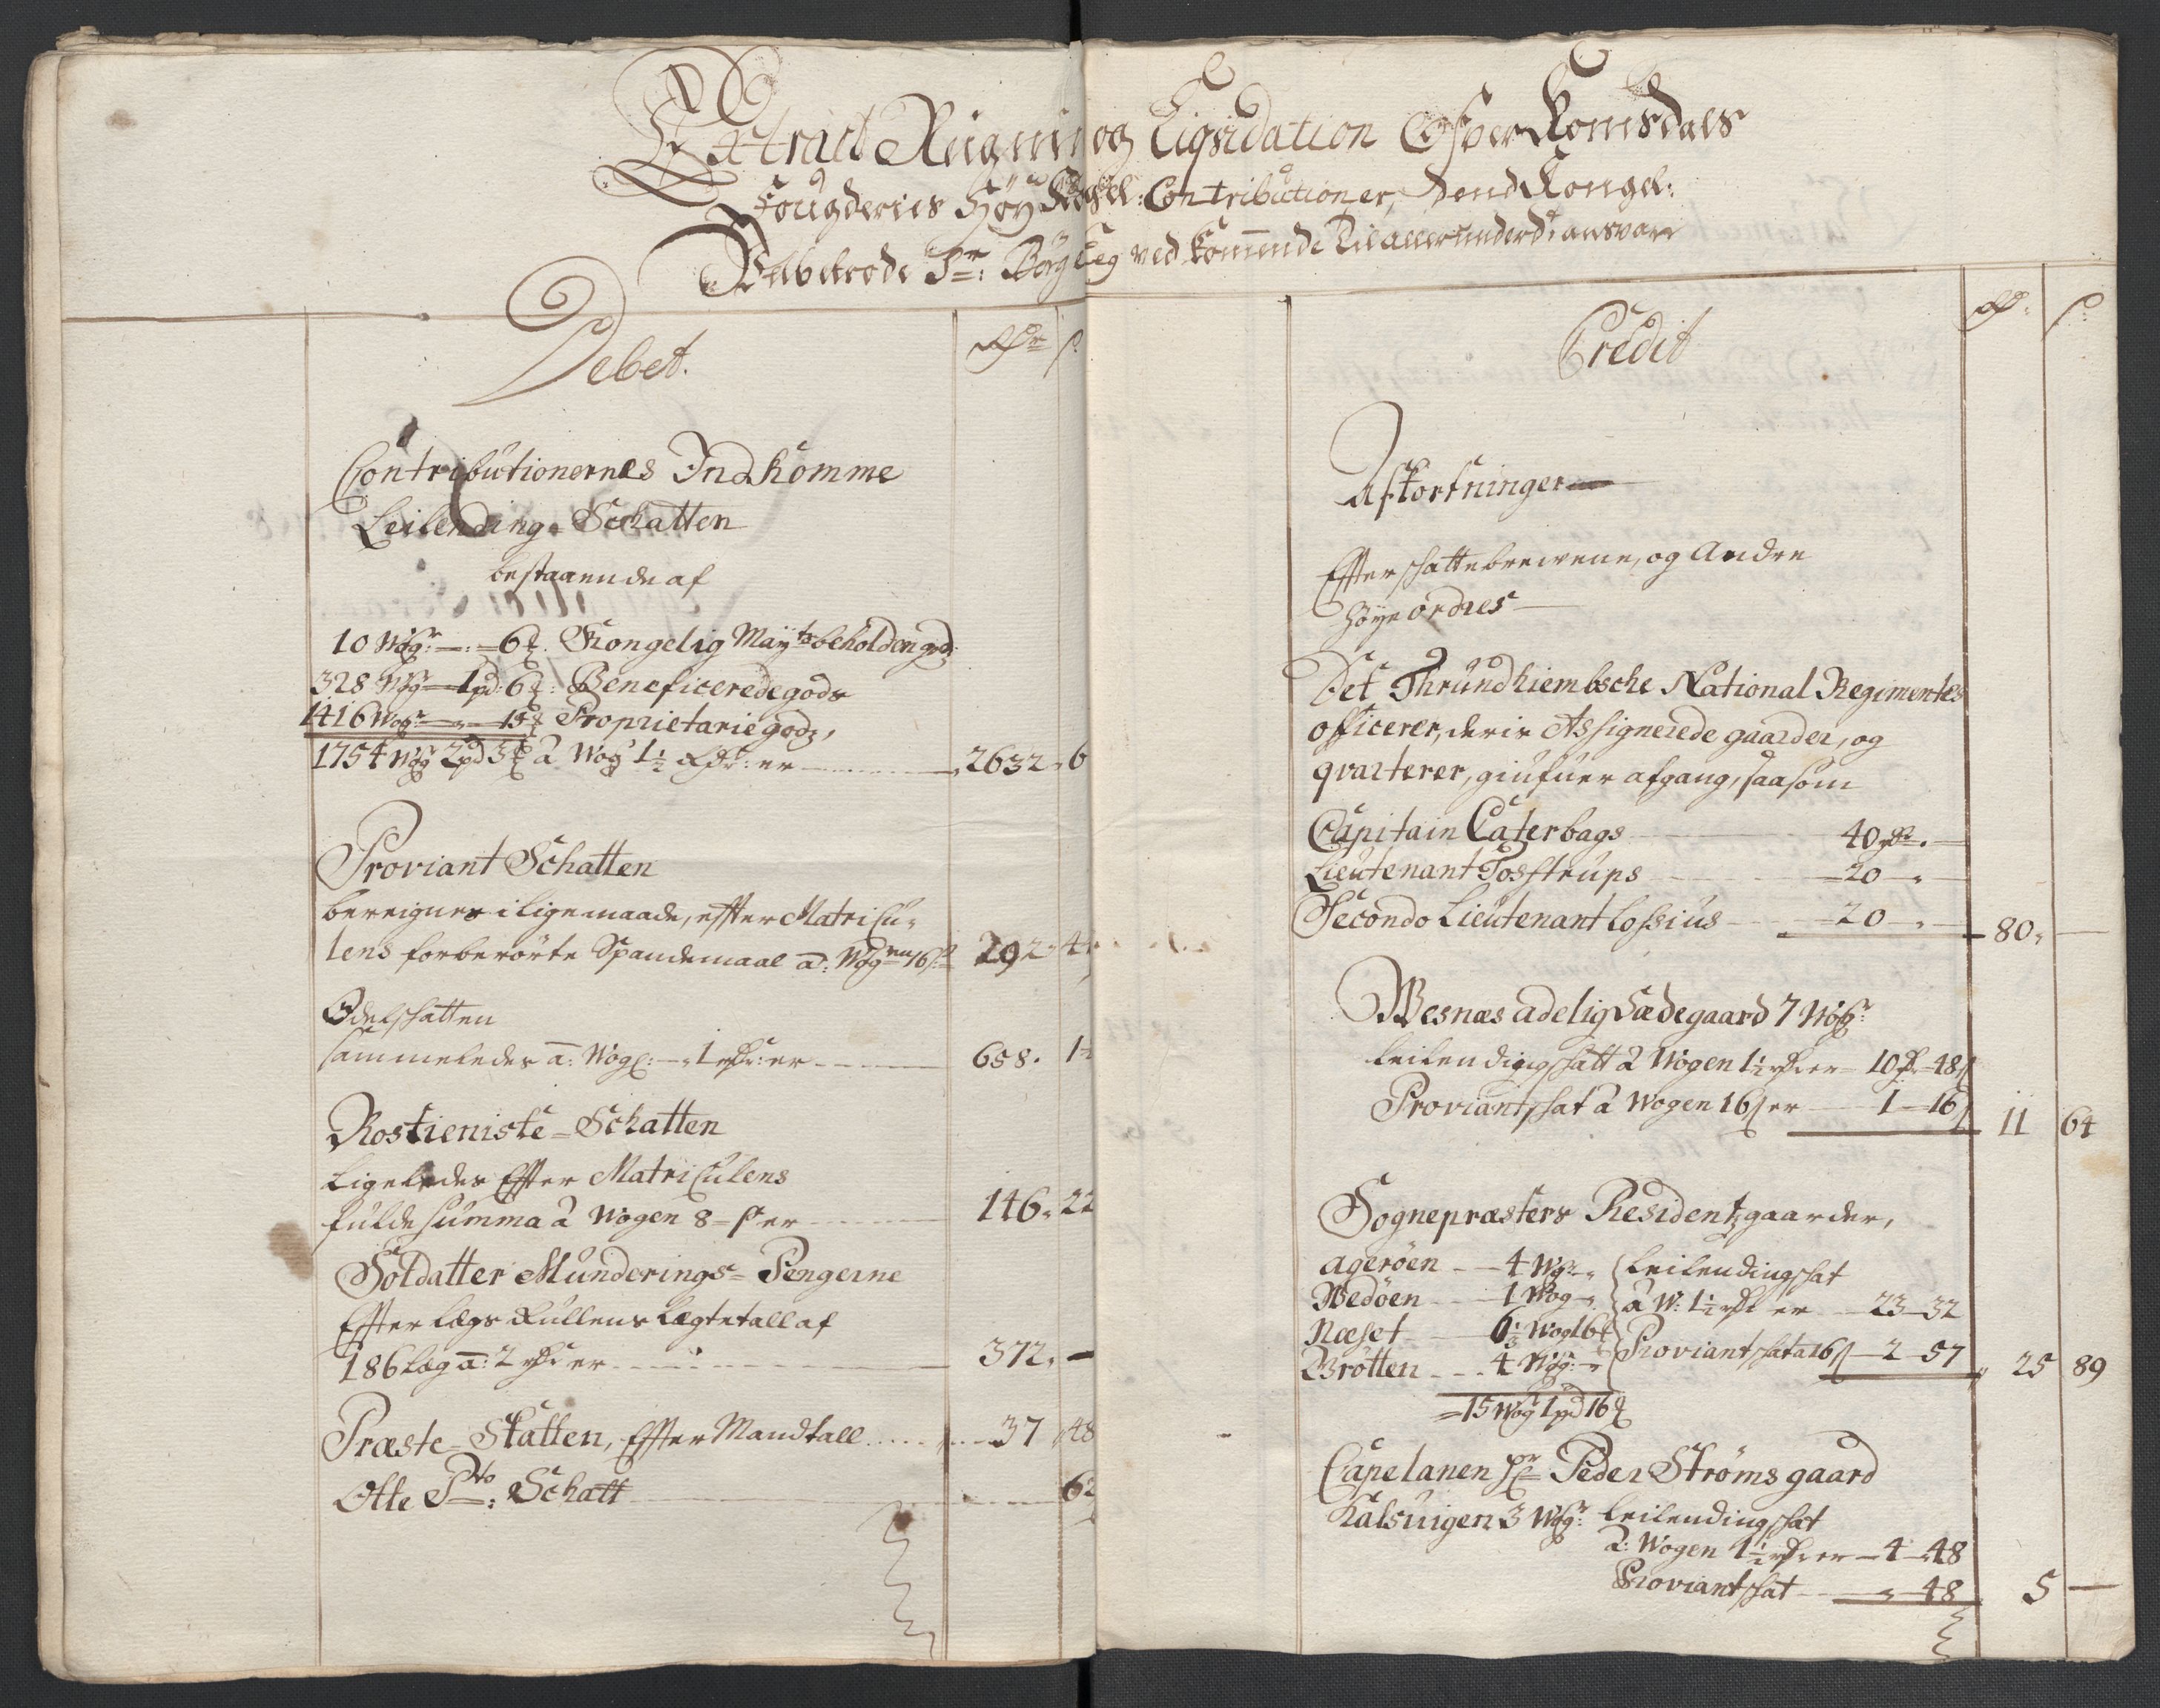 Extract Reigning og Liqvidation Ofver Romsdals
Fougderies Contributioner, Dend Kongel:
Velbetrode Sr: ved kommende til allerunderd: ansvar
Debet.
Rdr s
Contributionernes Indkomme
Leilending-Schatten
bestaaende af
10 Wogr: 6 Kongelig Mayts beholden gods
328 Wogr 1 pd: 6 Beneficerede gods
1416 Wogr 15 Proprietarie gods,
1754 Wog 2 pd 3 a Wog 1½ Rdr: er 2632 6
Proviant Schatten
bereignes i lige maade, effter Matricu-
lens forberörte Spandemaal a: Wogen 16 s 292 4
Odelschatten
sammeledes a: Wog: 1 rdr: er 658. 1
Rostieniste-Schatten
Ligeledes Effter Matriculens
fulde summa a Wogen 8 s er 146 22
Soldatter Munderings-Pengerne
Effter Legs Rullens Legtetall af
186 leg a: 2 rdr er 372 -
Præste-Skatten, Effter Mandtall 37 48
Otte Pto: Schatt 6
Credit
Rd: s:
Afkortninger
Effter schattebrevene, og Andre
höye ordres
Det Thrundhiembsche National Regimentes
officerer, deris Assignerede gaarder, og
qvarterer, giufuer afgang, saasom
Capitain Caterbags 40 rdr.
Lieutenant Tostrups 20
Secondo Lieutenant Lossius 20 80
Wesnæs adelig Sædegaard 7 Wogr:
Leilendingschatt a Wogen 1½ rdr er 10 rd 48 s
Proviantschat a Wogen 16 s er 1 16 s 11 64
Sognepræsters Residentzgaarder,
Ageröen 4 Wogr Leilendingschat
Wedöen 1 Wog a W: 1½ rdr er 23 32
Næset 6½ Wog 16 Proviantschat a 16 s 2 57
Grötten 4 Wogr: 25 89
15 Wog 1 pd 16
Capelanen hr Peder Ströms gaard
Kalsuigen 3 Wogr: Leilendingschat
a: Wogen 1½ rdr er 4 48
Proviantschat 48 5 -